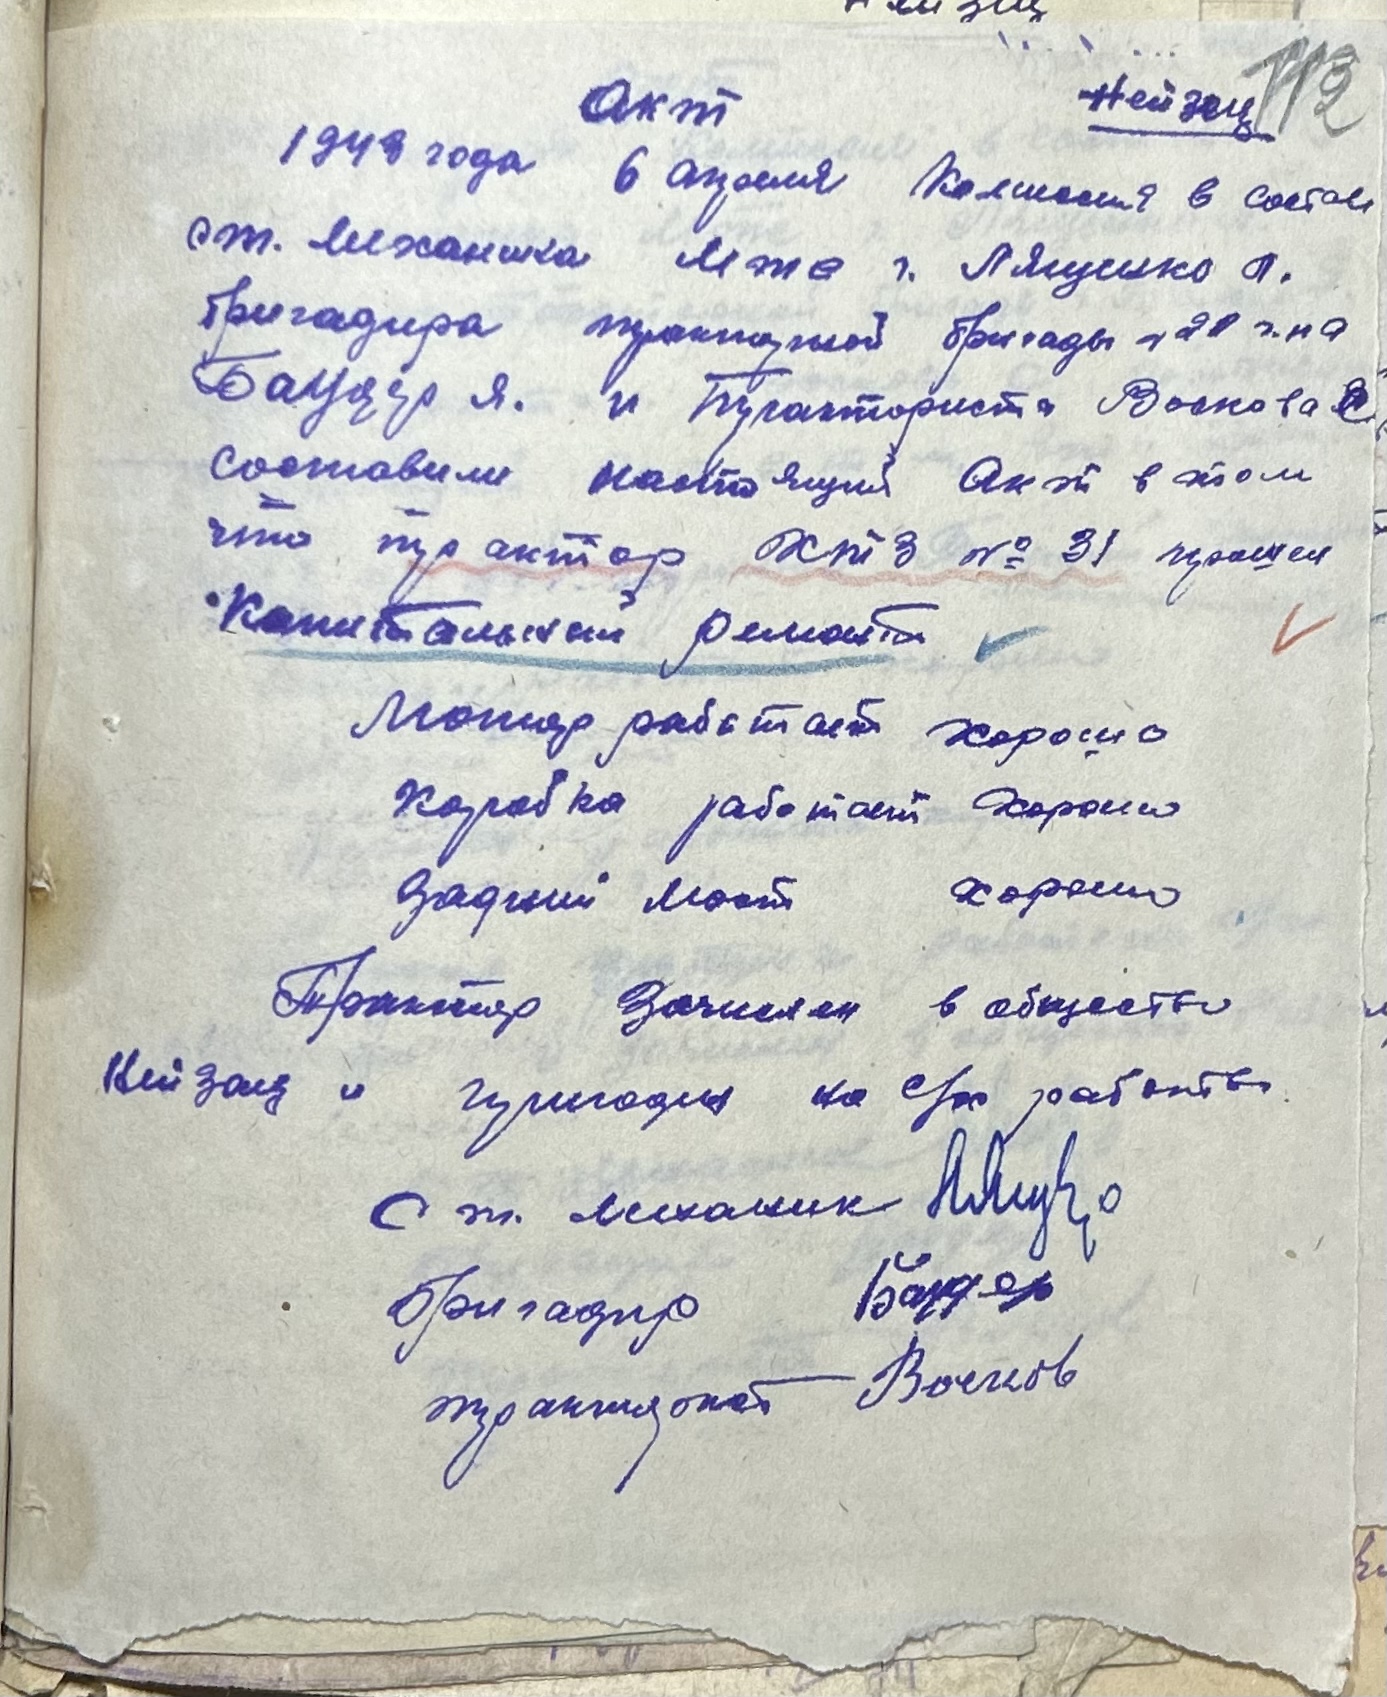 Нейзац
112
Акт
1943 года 6 апреля Комиссия в состав
ст. Механика Мтс т. Ляшенко П.
бригадира тракторной бригады
Бауэр Я. и Тракториста Воскова
составили настоящий Акт в том
что трактор ХТЗ № 31 прошел
Капитальный ремонт
Мотор работает хорошо
Коробка работает хорошо
Задний Мост хорошо
Трактор Зачислен в общество
Нейзац и пригоден на с/х работы.
Ст. механик
Бригадир
тракторист Восков